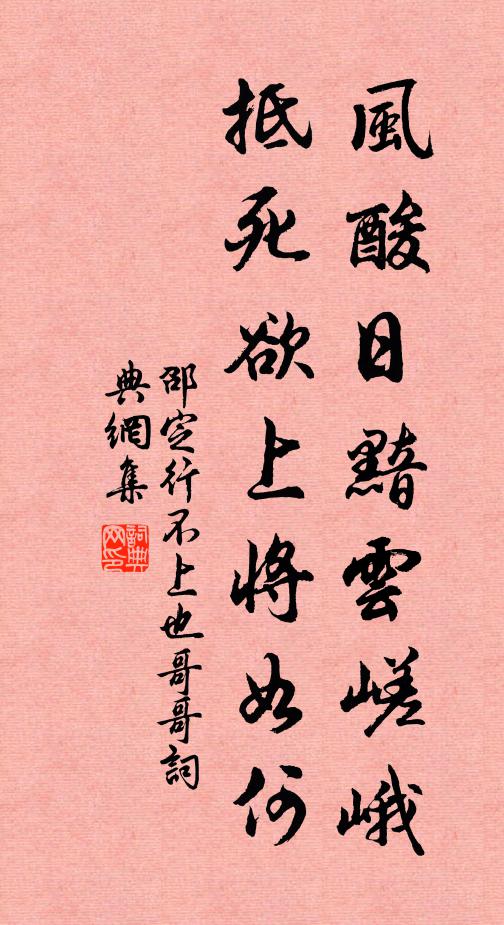 風酸日黯雲嵯峨
抵死欲上將如何
邵定行不上也哥哥詞
典網集
詞典網印